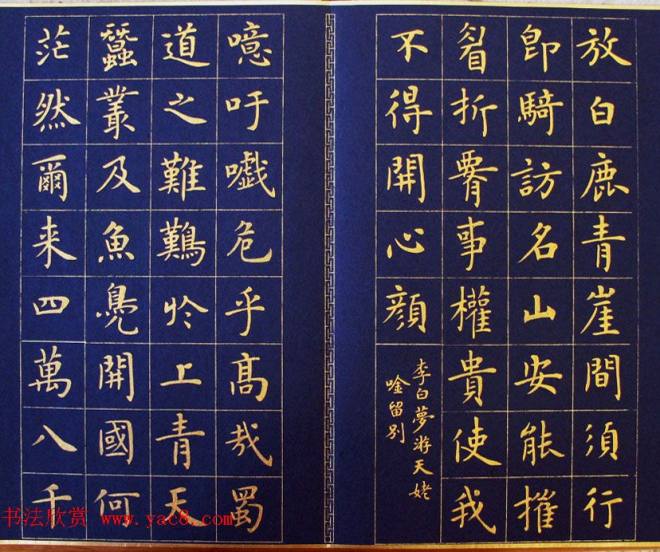 放白鹿青崖間須行
即騎訪名山安能摧
眉折腰事權貴使我
不得開心顔
李白夢游天姥
唫留别
噫吁嚱危乎髙哉蜀
道之難難於上青天
蠶叢及魚鳧開國何
茫然爾来四萬八千
书法欣赏 www.yac8.com